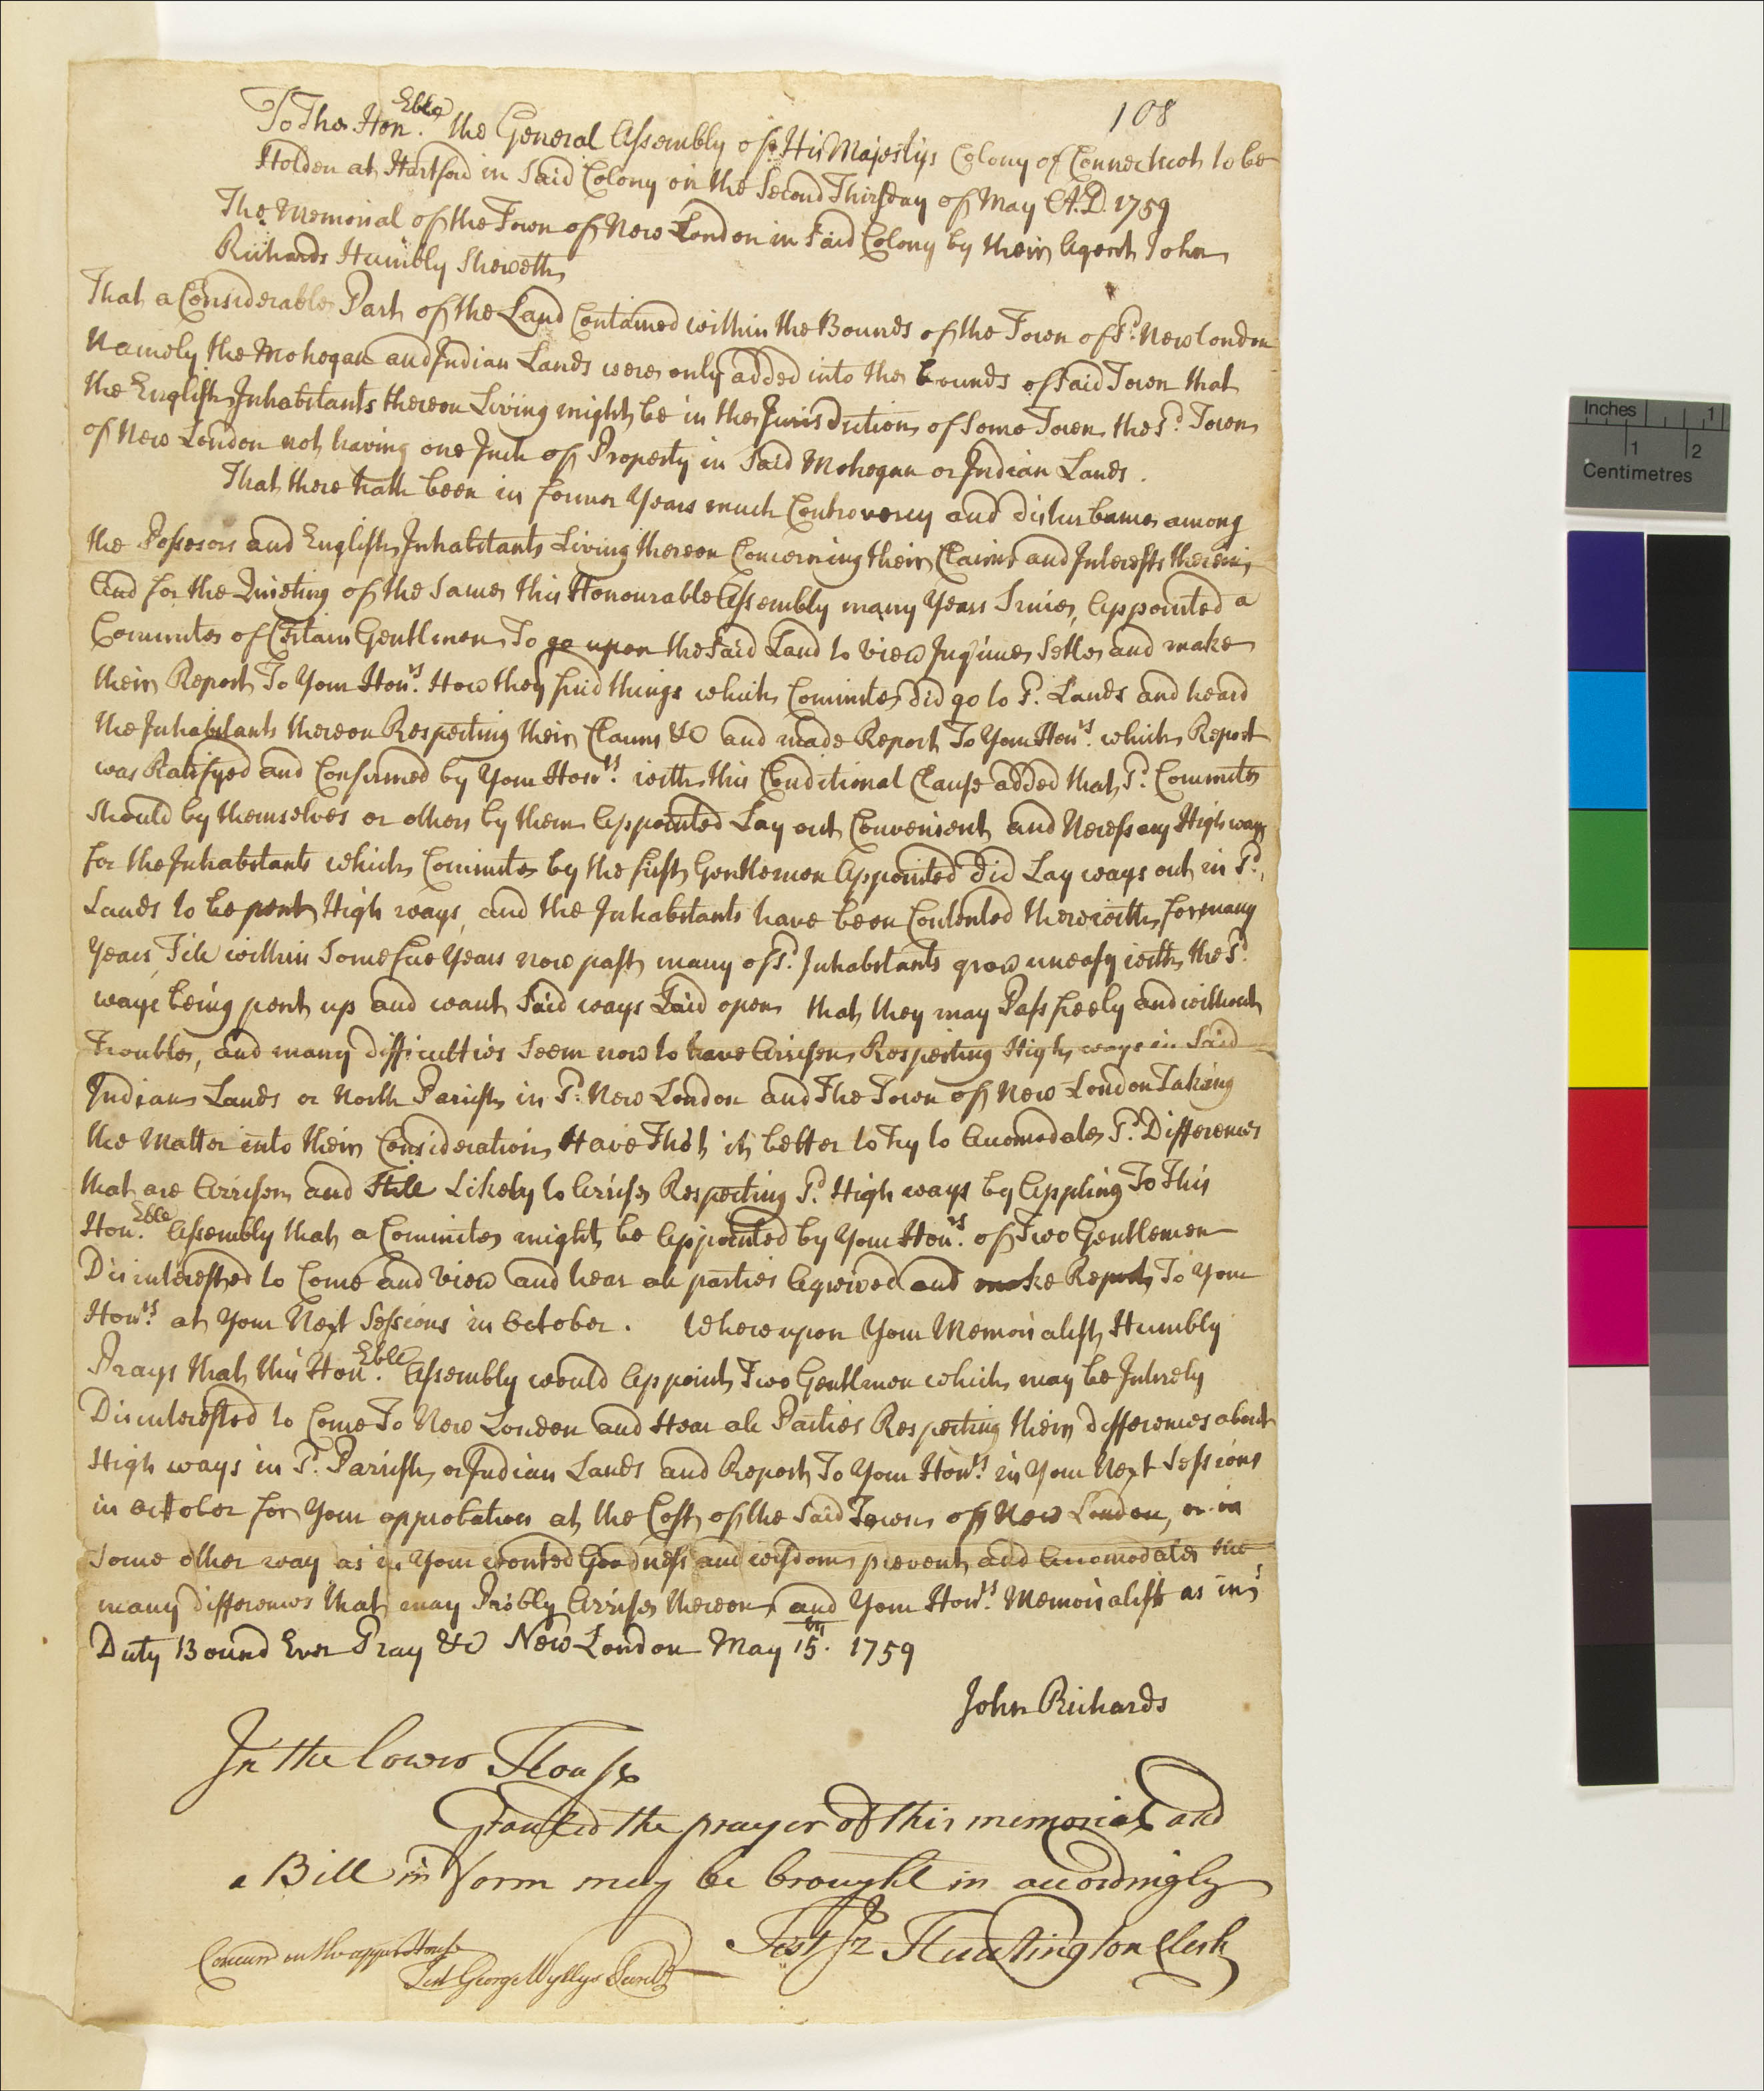 108
To The Hon.Eble the General Assembly of His Majestys Colony of Connecticot to be
Holden at Hartford in Said Colony on the Second Thirsday of May A.D. 1759
The Memorial of the Town of New London in Said Colony by their Agent John
Richards Humbly Sheweth
That a Considerable Part of the Land Contained within the Bounds of the Town of Sd. New London
Namely the Mohegan and Indian Lands were only added into the bounds of Said Town that
the English Inhabitants thereon Living might be in the Jurisdiction of Some Town the Sd. Town
of New London not having one Inch of Property in Said Mohegan or Indian Lands.
That there hath been in former Years much Controversy and disturbance among
the Possesors and English Inhabitants Living thereon Concerning their Claims and Interests therein;
And for the Quieting of the Same this Honourable Assembly many Years Since, Appointed a
Committee of Certain Gentlmen To go upon the Said Land to View Inquire Settle and make
their Report To Your Honrs. How they find things which Committee did go to Sd. Lands and heard
the Inhabitants thereon Respecting their Claims &c and made Report To Your Honrs. which Report
was Ratifyed and Confirmed by Your Honrs. with this Conditional Clause added that Sd. Committe
Should by themselves or others by them Appointed Lay out Convenient and Necessary High ways
for the Inhabitants which Committe by the first Gentlemen Appointed did Lay ways out in Sd.
Lands to be pent High ways, and the Inhabitants have been Contented therewith for many
Years, Till within Some few Years now past many of Sd. Inhabitants grow uneasy with the Sd.
ways being pent up and want Said ways Laid open that they may Pass freely and without
Trouble, and many difficultiés Seem now to have Arrisen Respecting High ways in Said
Indian Lands or North Parish in Sd. New London and The Town of New London Taking
the Matter into their Consideration Have Thôt it better to Try to Accomodate Sd. Differences
that are Arrisen and Still Likely to Arrise Respecting Sd. High ways by Appling To This
Hon.Eble Assembly that a Committee might be Appointed by Your Honrs. of Two Gentlemen
Disinterested to Come and View and hear all parties Agreived and make Report To Your
Honrs. at Your Next Sessions in October. Whereupon Your Memorialist Humbly
Prays that this Hon.Eble Assembly would Appoint Two Gentlmen which may be Intirely
Disinterested to Come To New London and Hear all Parties Respecting their differences about
High ways in Sd. Parish or Indian Lands and Report To Your Honrs. in Your Next Sessions
in October for Your approbation at the Cost of the Said Town of New London, or in
Some other way as in Your wonted Goodness and wisdom prevent and Accomodate the
many differences that may Probbly Arrise thereon and Your Honrs. Memorialist as in
Duty Bound Ever Pray &c New London May 15th. 1759
John Richards
In the Lower House
Granted the prayer of this memorial and
a Bill in Form may be brought in accordingly
Test Jz Huntington Clerk
Concurrd in the upper House
Test George Wyllys Secrety
Inches 1
1 2
Centimetres